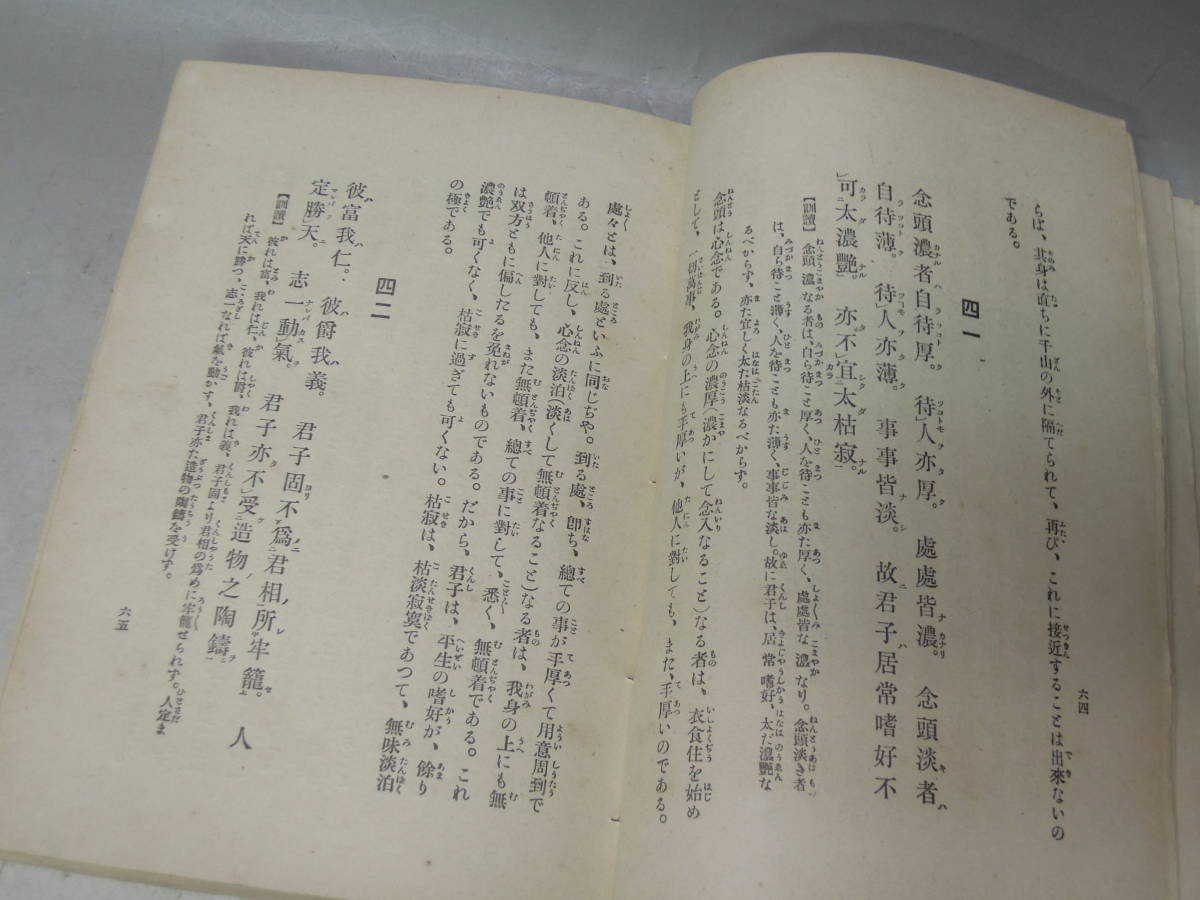 六四
らば、其身は直ちに千山の外に隔てられて、再び、これに接近することは出來ないの
である。
四一
念頭濃者自待厚。待人亦厚。處處皆濃。念頭淡者
自待薄。待人亦薄。事事皆淡。故君子居常嗜好不
可太濃艷。亦不宜太枯寂。
【訓讀】念頭濃なる者は、自ら待こと厚く、人を待ことも亦た厚く、處處皆な濃なり。念頭淡き者
は、自ら待こと薄く、人を待ことも亦た薄く、事事皆な淡し。故に君子は、居常嗜好、太だ濃艷な
るべからず、亦た宜しく太た枯淡なるべからず。
念頭は心念である。心念の濃厚(濃かにして念入なること)なる者は、衣食住を始め
として、一切萬事、我身の上にも手厚いが、他人に對しても、また、手厚いのである。
處々とは、到る處といふに同じぢや。到る處、卽ち、總ての事が手厚くて用意周到で
ある。これに反し、心念の淡泊(淡くして無頓着なること)なる者は、我身の上にも無
頓着、他人に對しても、また無頓着、總ての事に對して、悉く、無頓着である。これ
は双方ともに偏したるを免れないものである。だから、君子は、平生の嗜好が、餘り
濃艷でも可くなく、枯寂に過ぎても可くない。枯寂は、枯淡寂寞であつて、無味淡泊
の極である。
四二
彼富我仁。彼爵我義。君子固不爲君相所牢籠。人
定勝天。志一動氣。君子亦不受造物之陶鑄。
【訓讀】彼れは富、我れは仁、彼れは爵、我れは義、君子固より君相の爲めに牢籠せられず。人定ま
れば天に勝つ、志一なれば氣を動かす、君子亦た造物の陶鑄を受けず。
六五